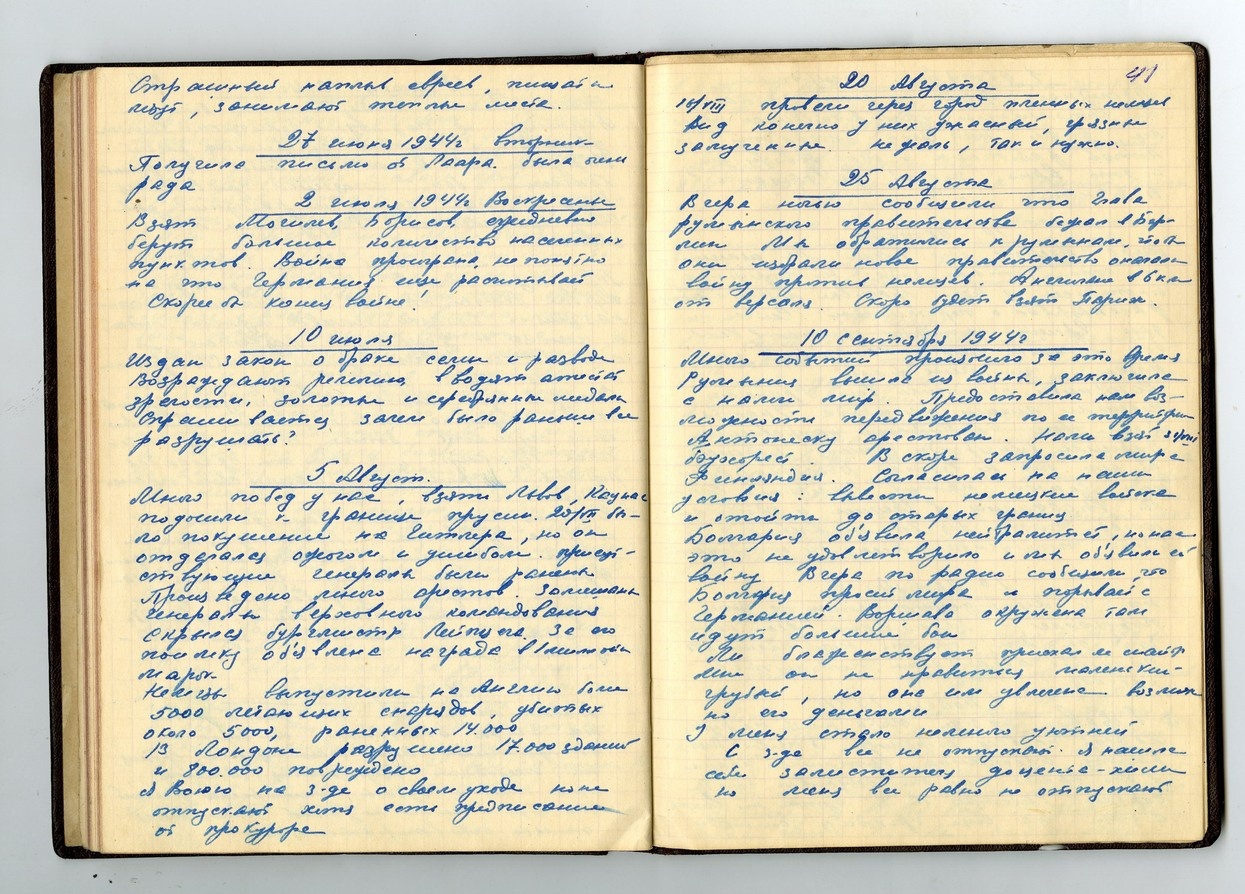 Страшный наплыв евреев, пишат и
идут, занимают теплые места.
27 июня 1944г вторник
Получила письмо от Лаара. была очень
рада
2 июля 1944г Воскресенье
Взят Могилев, Борисов, ежедневно
берут большое количество населенных
пунктов. Война проиграна, не понятно
на что Германия еще расчитывает
Скорее бы конец войне!
10 июля
Издан закон о браке семьи и разводе
Возраждают религию, вводят аттестат
зрелости, золотые и серебрянные медали
Спрашивается зачем было раньше все
разрушать?
5 Август.
Много побед у нас, взяты Львов, Каунас
подошли к границе прусии. 20/VII бы-
ло покушение на Гитлера, но он
отделался ожогом и ушибом. присут-
ствующие генералы были ранены
Произведено много арестов. Замешаны
генералы верховного командования
скрылся бургмистр Лейпцега. За его
поимку об'явлена награда в 1 миллион
марок
Немцы выпустили на Англию более
5000 летающих снарядов, убитых
около 5000, раненных 14.000
В Лондоне разрушено 17.000 зданий
и 800.000 повреждено
Я воюю на з-де о своем уходе но не
отпускают хотя есть предписание
от прокурора
41
20 Августа
16/VIII провели через город пленных немцев
Вид конечно у них ужасный, грязные
замученные. не жаль, так и нужно.
25 Августа
Вчера ночью сообщили что глава
румынского правительства бежал в Бер-
лин Мы обратились к румынам, чтоб
они избрали новое правительство и начали
войну против немцев. Англичане в 6 км
от версаля. Скоро будет взят Париж.
10 сентября 1944г
Много событий произошло за это время
Румыния вышла из войны, заключила
с нами мир. Предоставила нам воз-
можность передвижения по ее территории
Антонеску арестован. Нами взят 31/VIII
бухарест. Вскоре запросила мира
Финляндия. Согласилась на наши
условия: вывести немецкие войска
и отойти до старых границ
Болгария об'явила нейтралитет, но нас
это не удовлетворило и мы об'явили ей
войну Вчера по радио сообщили, что
Болгария просит мира и порывает с
Германией. Варшава окружена там
идут большие бои
Ли блаженствует приехал ее майор
мне он не нравиться маленький
грубый, но она им увлечена возмож
но его деньгами
У меня стало немного уютней
С з-де все не отпускают. Я нашла
себе заместителя доцента-хими
но меня все равно не отпускают